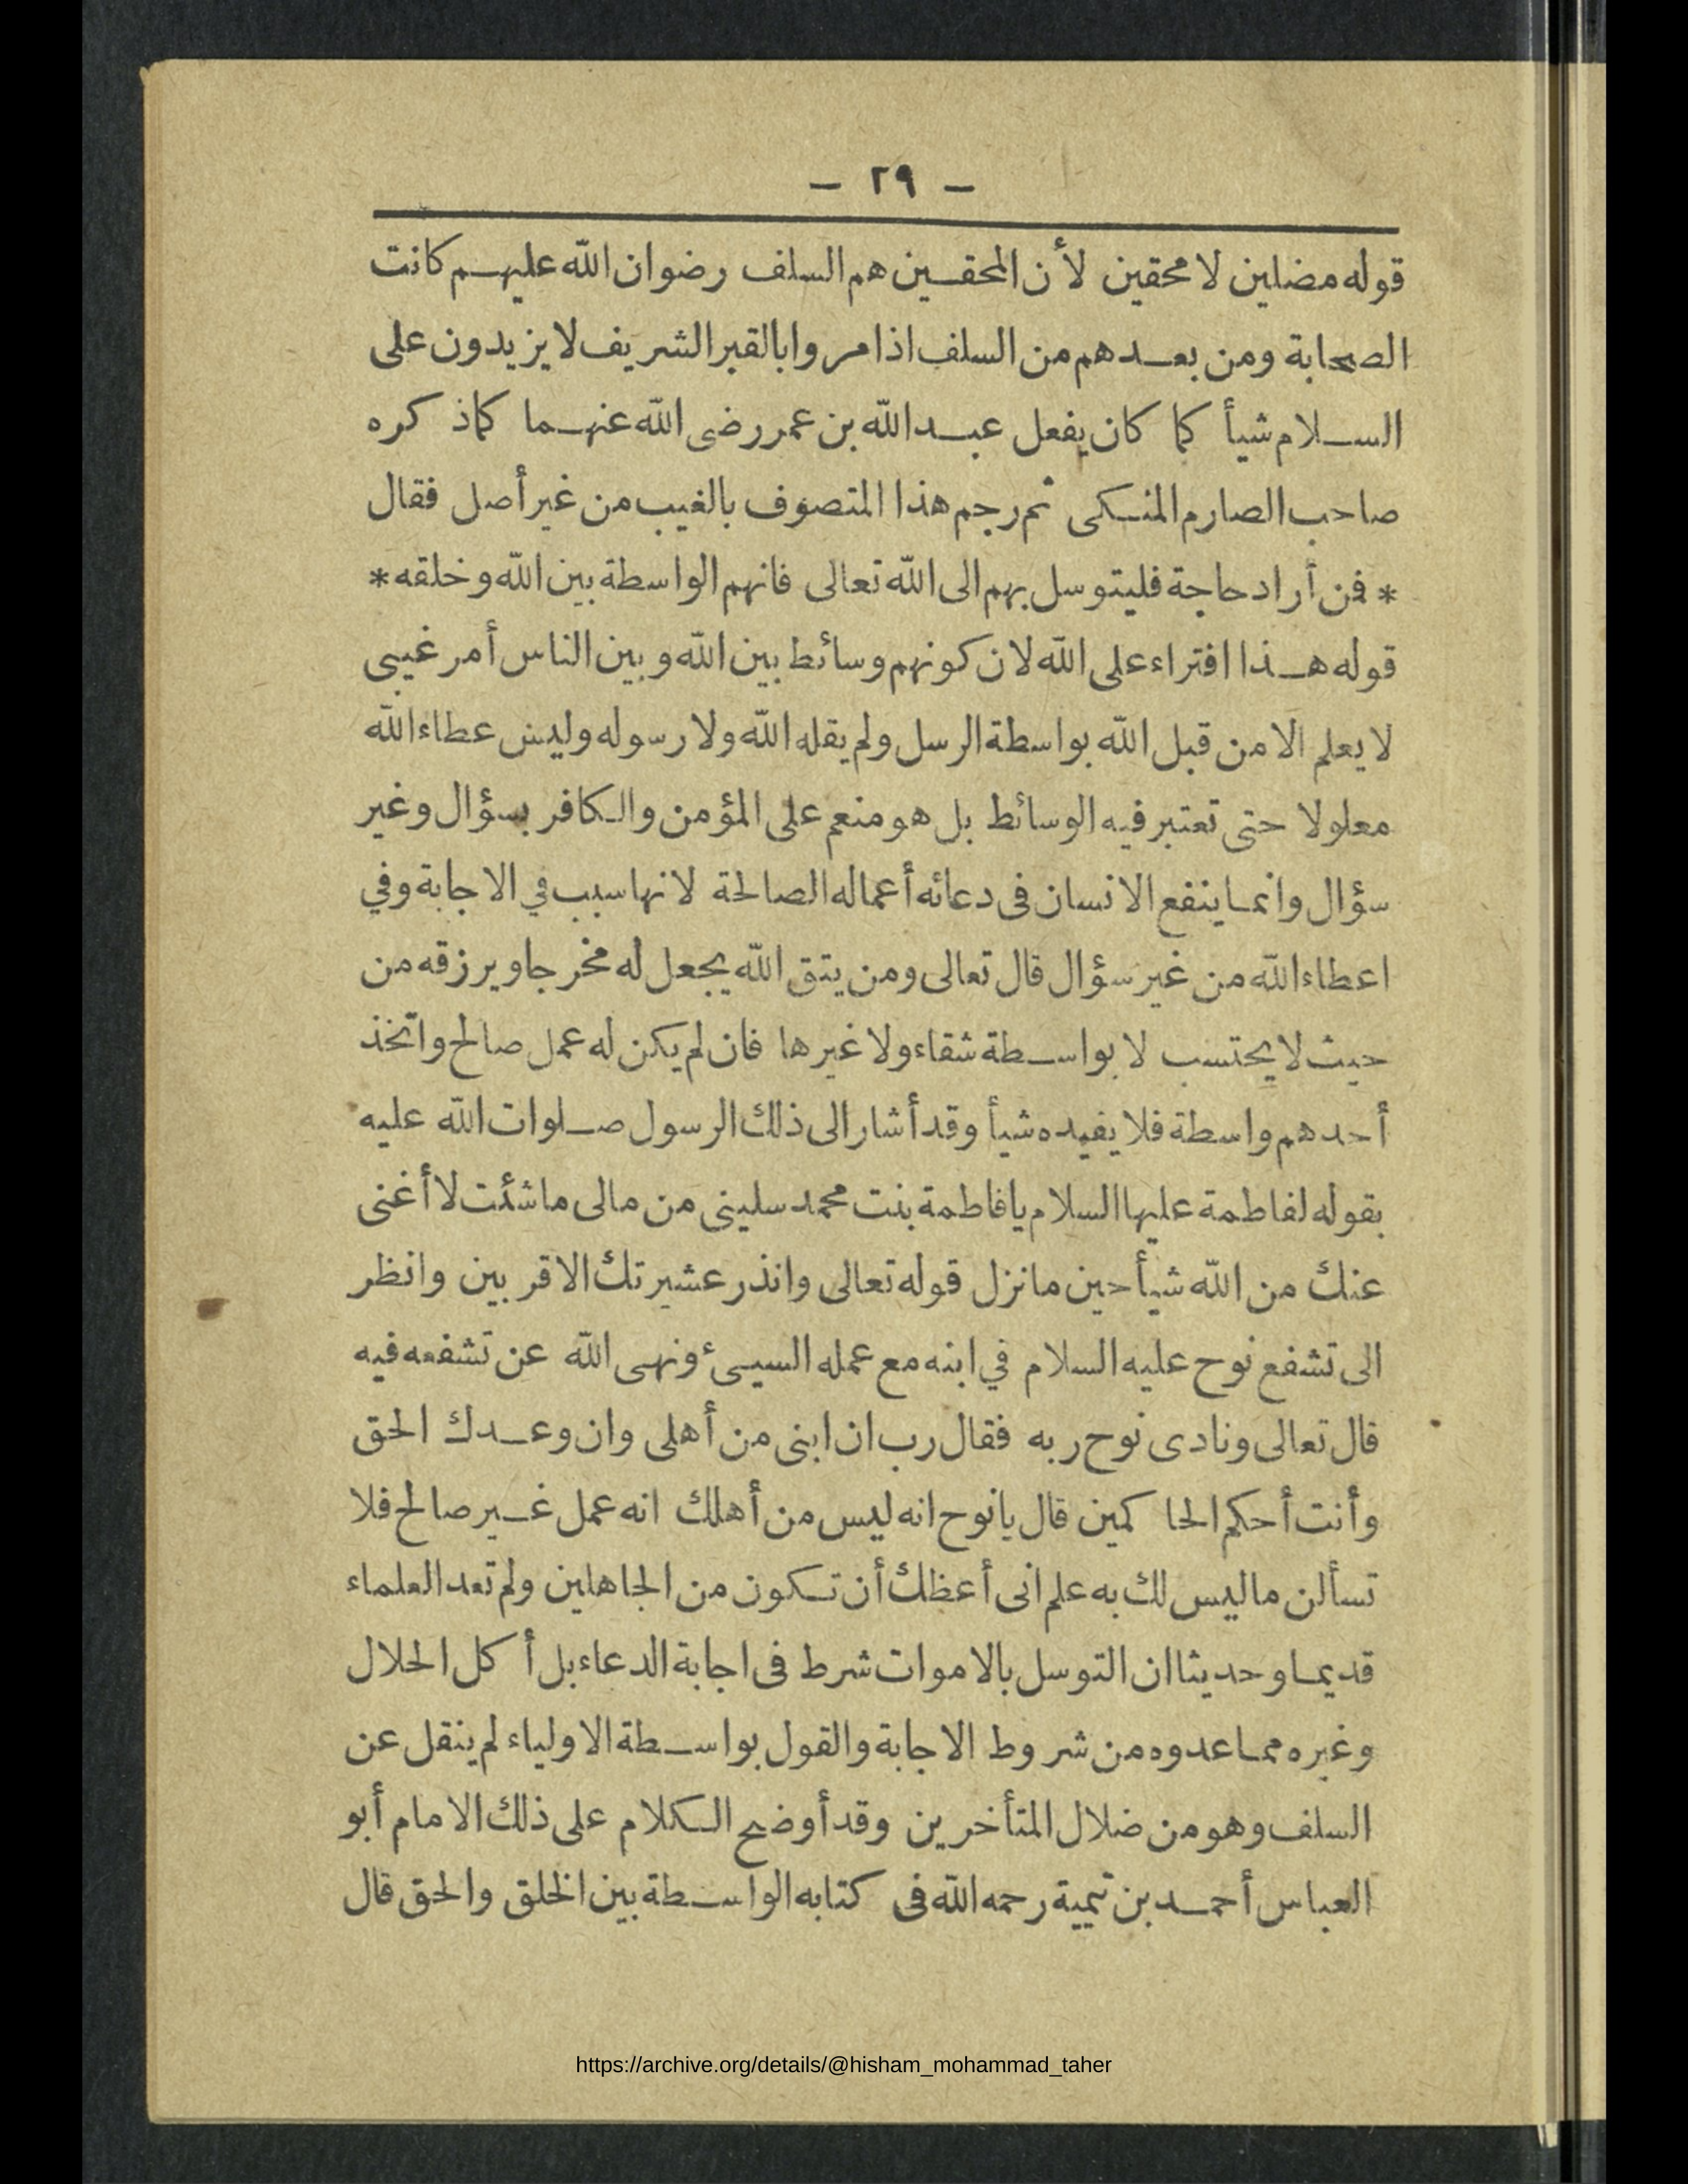 — ٢٩ —
قوله مضلين لا محقين لأن المحقين هم السلف رضوان الله عليهم كانت
الصحابة ومن بعدهم من السلف اذا مروا بالقبر الشريف لا يزيدون على
السلام شيأ كما كان يفعل عبد الله بن عمر رضى الله عنهما كما ذكره
صاحب الصارم المنكى ثم رجم هذا المتصوف بالغيب من غير أصل فقال
* فمن أراد حاجة فليتوسل بهم الى الله تعالى فانهم الواسطة بين الله وخلقه *
قوله هذا افتراء على الله لان كونهم وسائط بين الله وبين الناس أمر غيبى
لا يعلم الا من قبل الله بواسطة الرسل ولم يقله الله ولا رسوله وليس عطاء الله
معلولا حتى تعتبر فيه الوسائط بل هو منعم على المؤمن والكافر بسؤال وغير
سؤال وانما ينفع الانسان فى دعائه أعماله الصالحة لانها سبب في الاجابة وفي
اعطاء الله من غير سؤال قال تعالى ومن يتق الله يجعل له مخرجا ويرزقه من
حيث لا يحتسب لا بواسطة شقاء ولا غيرها فان لم يكن له عمل صالح واتخذ
أحدهم واسطة فلا يفيده شيأ وقد أشار الى ذلك الرسول صلوات الله عليه
بقوله لفاطمة عليها السلام يا فاطمة بنت محمد سلينى من مالى ما شئت لا أغنى
عنك من الله شيأ حين ما نزل قوله تعالى وانذر عشيرتك الاقربين وانظر
الى تشفع نوح عليه السلام في ابنه مع عمله السيئ ونهى الله عن تشفعه فيه
قال تعالى ونادى نوح ربه فقال رب ان ابنى من أهلى وان وعدك الحق
وأنت أحكم الحاكمين قال يا نوح انه ليس من أهلك انه عمل غير صالح فلا
تسألن ما ليس لك به علم انى أعظك أن تكون من الجاهلين ولم تعد العلماء
قديما وحديثا ان التوسل بالاموات شرط فى اجابة الدعاء بل أكل الحلال
وغيره مما عدوه من شروط الاجابة والقول بواسطة الاولياء لم ينقل عن
السلف وهو من ضلال المتأخرين وقد أوضح الكلام على ذلك الامام أبو
العباس أحمد بن تيمية رحمه الله فى كتابه الواسطة بين الخلق والحق قال
https://archive.org/details/@hisham_mohammad_taher